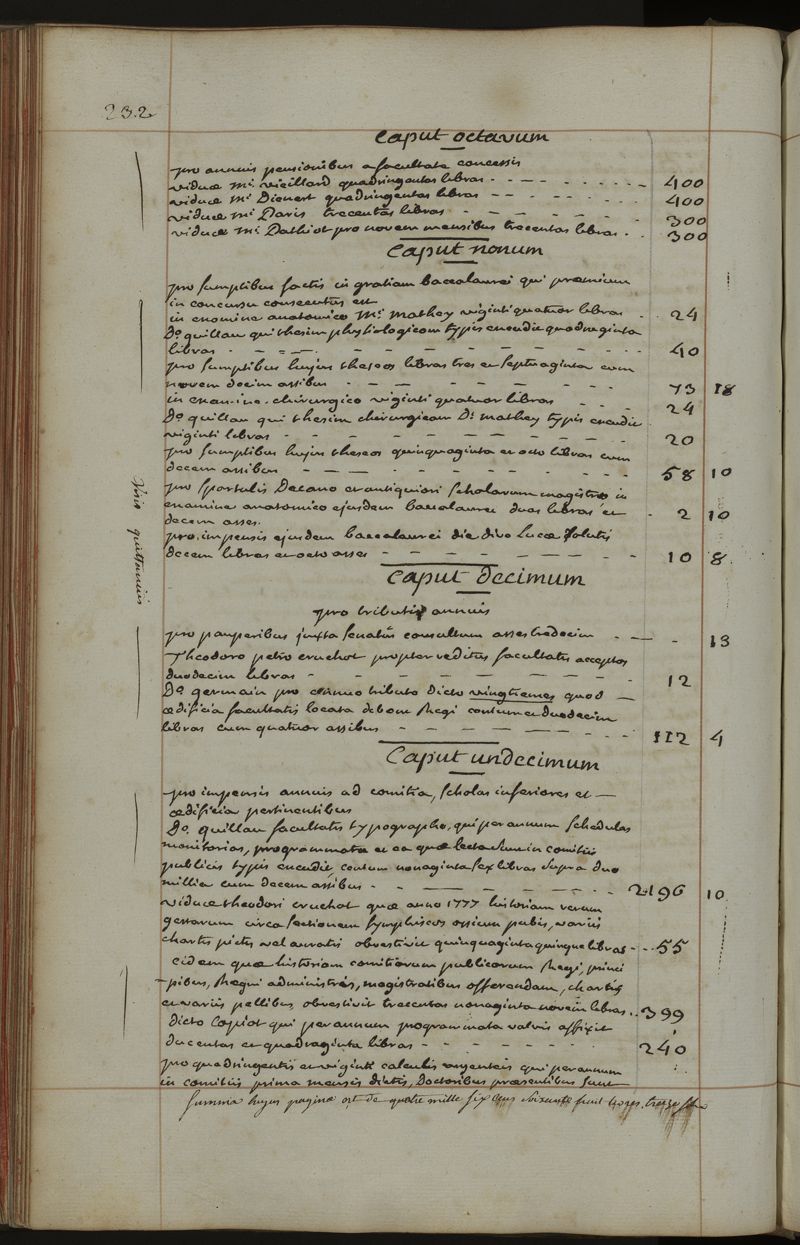 232
Caput octavum
pro annuis pensionibus a facultate concessis
viduæ Mi. vieillard quadringentas libras - - - - - - - 400
viduæ Mi. Dienert quadringentas libras - - - - - - - 400
viduæ Mi. Davis trecentas libras - - - - - - 300
viduæ Mi. Dathiot pro novem mensibus trecentas libras - - 300
Caput nonum
pro sumptibus factis in gratiam baccalaurei qui præmium
in concursu consecutus est
in examine anatomico Mi. mathey viginti quatuor libras - 24
Do. quillau qui thesim physiologicam typis excudit quadraginta
libras - - - - - - - - - - 40
pro sumptibus hujus theseos libras tres et septuaginta cum
novem decim assibus - - - - - - - 73 18
in examine chirurgico viginti quatuor libras - - - 24
Do. quillau qui thesim chirurgicam Di. mathey typis excudit
viginti libras - - - - - - - - - 20
pro sumptibus hujus theseos quinquaginta et octo libras cum
decem assibus - - - - - - - - - 58 10
pro sportulis Decano et antiquiori scholarum magistro in
examine anatomico ejusdem baccalaurei duas libras et - 2 10
decem asses.
pro impensis ejusdem baccalaurei die divo Lucæ solutis
decem libras et octo asses - - - - - - - 10 8
visis quittanciis
Caput decimum
pro tributis annuis
pro pauperibus juxta senatûs consultum asses tredecim - - - 13
Theodoro petro cruchot propter reditus facultatis acceptos
duodecim libras - - - - - - - - 12
Do. germain pro annuo tributo dicto vingtiemes quod
ædificia facultatis locata debent Regi centum et duodecim
libras cum quatuor assibus - - - - - - - 112 4
Caput undecimum
pro impensis annuis ad comitia, scholas inferiores et
ædificia pertinentibus
Do. quillau facultatis typographo, qui per annum schedulas
monitorias, programmata et ea quæ lecta sunt in comitiis
publicis typis excudit, centum nonaginta sex libras supra duo
millia cum decem assibus - - - - - - - 2196 10
viduæ theodori cruchot quæ anno 1777 historiam rerum
gestarum circa sectionem symphiseos ossium pubis, variis
chartis pictis vel auratis obvestivit quinquaginta quinque libras - - 55
eidem quæ historiam comitiorum publicorum Regi, princi
-pibus, Regni administris, magistratibus offerendam, chartis
et variis pellibus obvestivit trecentas nonaginta novem libras - - 399
dicto Copiot qui per annum programmata valvis affixit
ducentas et quadraginta libras - - - - - - - 240
pro quadringentis et viginti calculis argenteis qui per annum
in comitiis prima mensis dictis, Doctoribus præsentibus sunt
summa hujus paginæ est de quatre mille six cens soixante huit livres treize s.